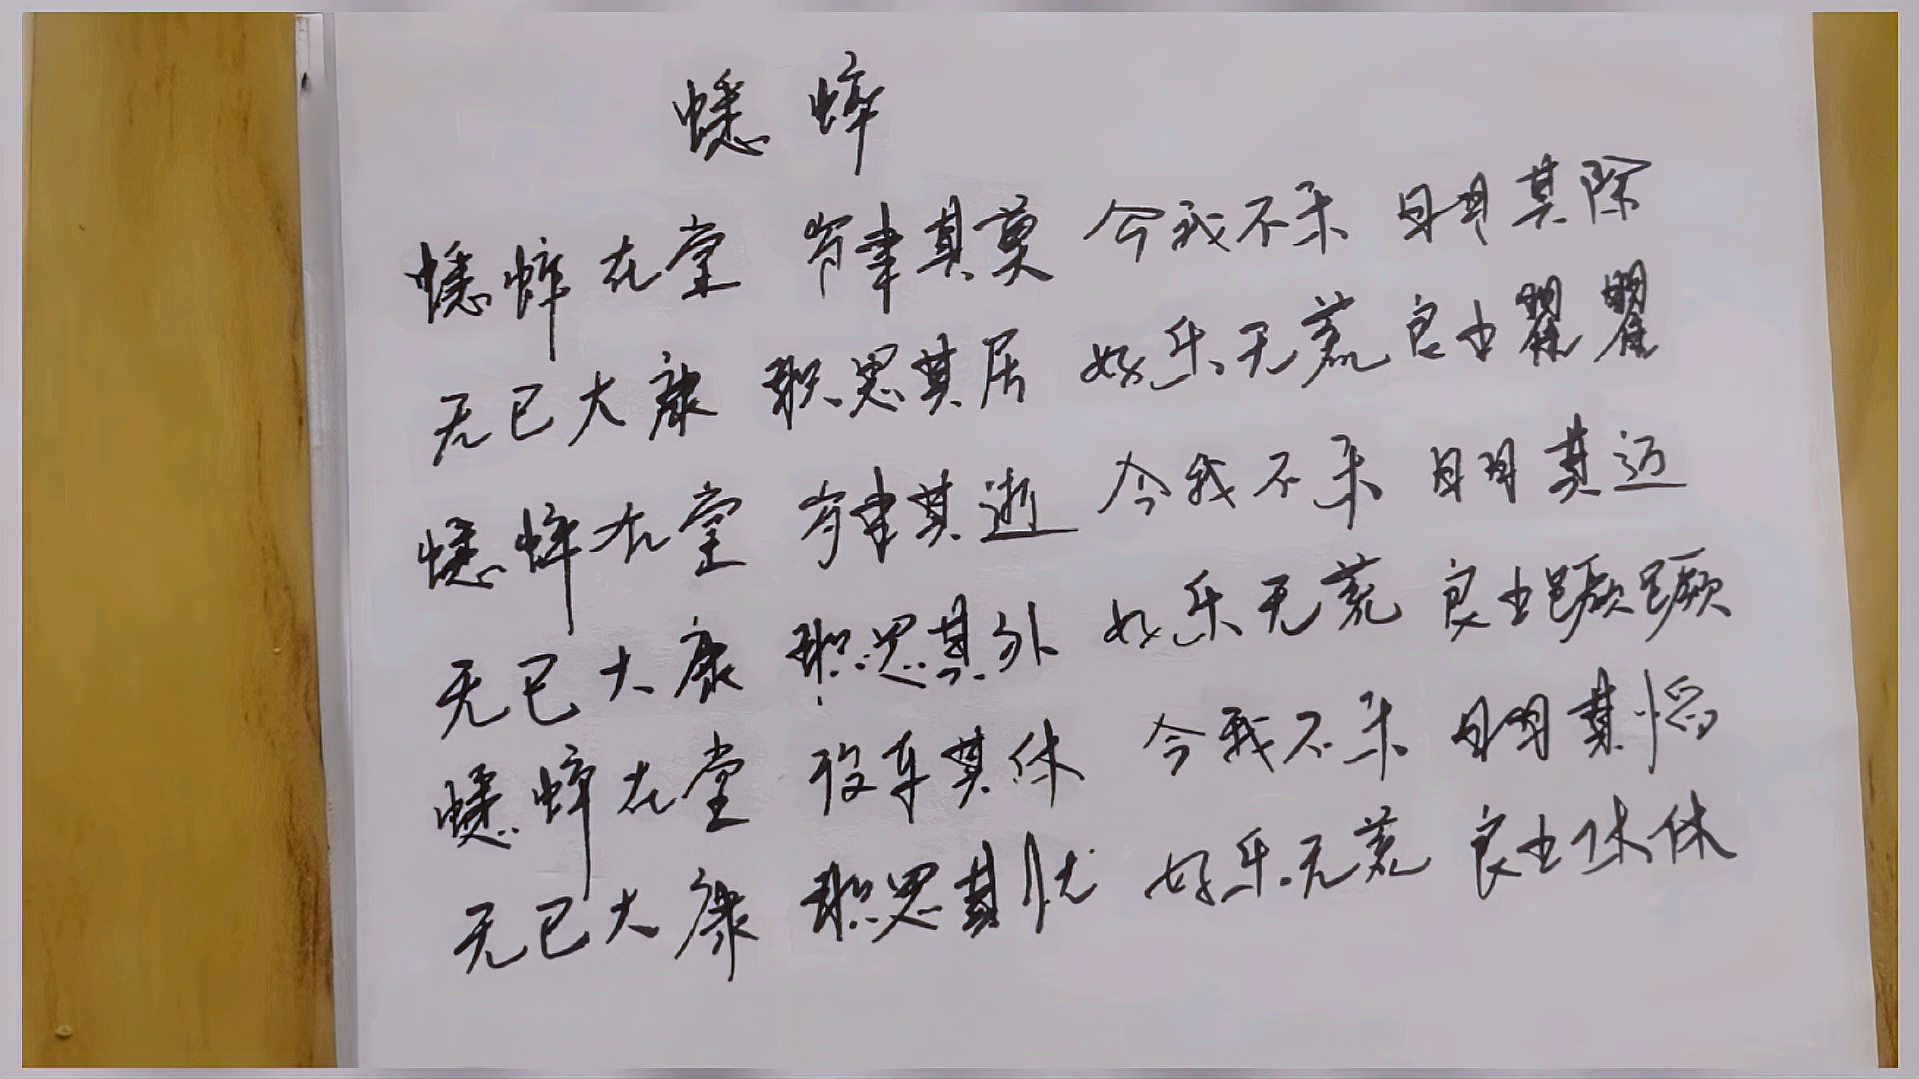 蟋蟀
蟋蟀在堂 岁聿其莫 今我不乐 日月其除
无已大康 职思其居 好乐无荒 良士瞿瞿
蟋蟀在堂 岁聿其逝 今我不乐 日月其迈
无已大康 职思其外 好乐无荒 良士蹶蹶
蟋蟀在堂 役车其休 今我不乐 日月其慆
无已大康 职思其忧 好乐无荒 良士休休